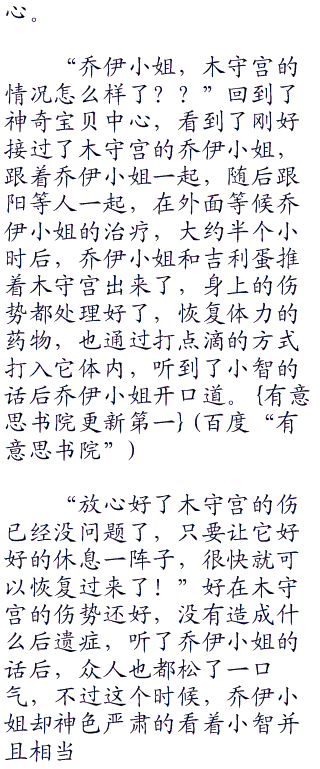 心。
“乔伊小姐，木守宫的
情况怎么样了？？”回到了
神奇宝贝中心，看到了刚好
接过了木守宫的乔伊小姐，
跟着乔伊小姐一起，随后跟
阳等人一起，在外面等候乔
伊小姐的治疗，大约半个小
时后，乔伊小姐和吉利蛋推
着木守宫出来了，身上的伤
势都处理好了，恢复体力的
药物，也通过打点滴的方式
打入它体内，听到了小智的
话后乔伊小姐开口道。{有意
思书院更新第一}(百度“有
意思书院”)
“放心好了木守宫的伤
已经没问题了，只要让它好
好的休息一阵子，很快就可
以恢复过来了！”好在木守
宫的伤势还好，没有造成什
么后遗症，听了乔伊小姐的
话后，众人也都松了一口
气，不过这个时候，乔伊小
姐却神色严肃的看着小智并
且相当